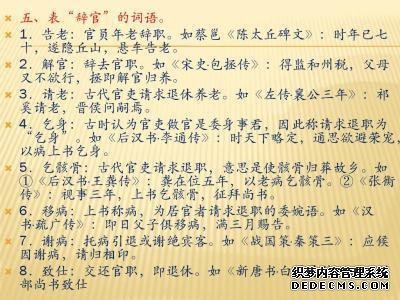 五、表“辞官”的词语。
1.告老：官员年老辞职。如蔡邕《陈太丘碑文》：时年已七
十，遂隐丘山，悬车告老。
2.解官：辞去官职。如《宋史·包拯传》：得监和州税，父母
又不欲行，拯即解官归养。
3.请老：古代官吏请求退休养老。如《左传·襄公三年》：祁
奚请老，晋侯问嗣焉。
4.乞身：古时认为官吏做官是委身事君，因此称请求退职为
“乞身”。如《后汉书·李通传》：时天下略定，通思欲避荣宠，
以病上书乞身。
5.乞骸骨：古代官吏请求退职，意思是使骸骨归葬故乡。如
①《后汉书·王龚传》：龚在位五年，以老病乞骸骨。②《张衡
传》：视事三年，上书乞骸骨，征拜尚书。
6.移病：上书称病，为居官者请求退职的委婉语。如《汉
书·疏广传》：即日父子俱移病，满三月赐告。
7.谢病：托病引退或谢绝宾客。如《战国策·秦策三》：应侯
因谢病，请归相印。
8.致仕：交还官职，即退休。如《新唐书·白
部尚书致仕
织梦内容管理系统